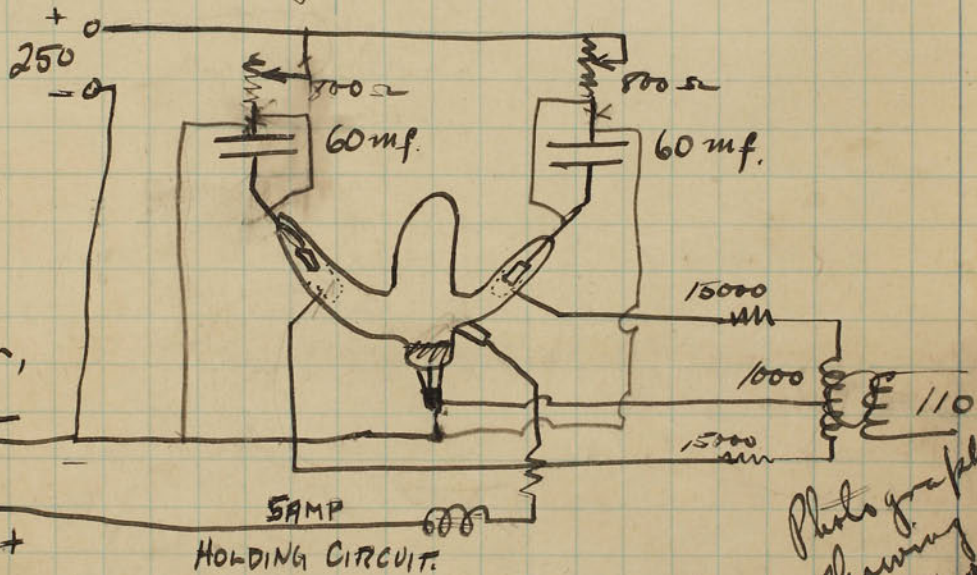 +
250
-
800 Ω
800 Ω
60 mf.
60 mf.
15000
1000
110
15000
-
5AMP
+
HOLDING CIRCUIT.
Photograph
showing